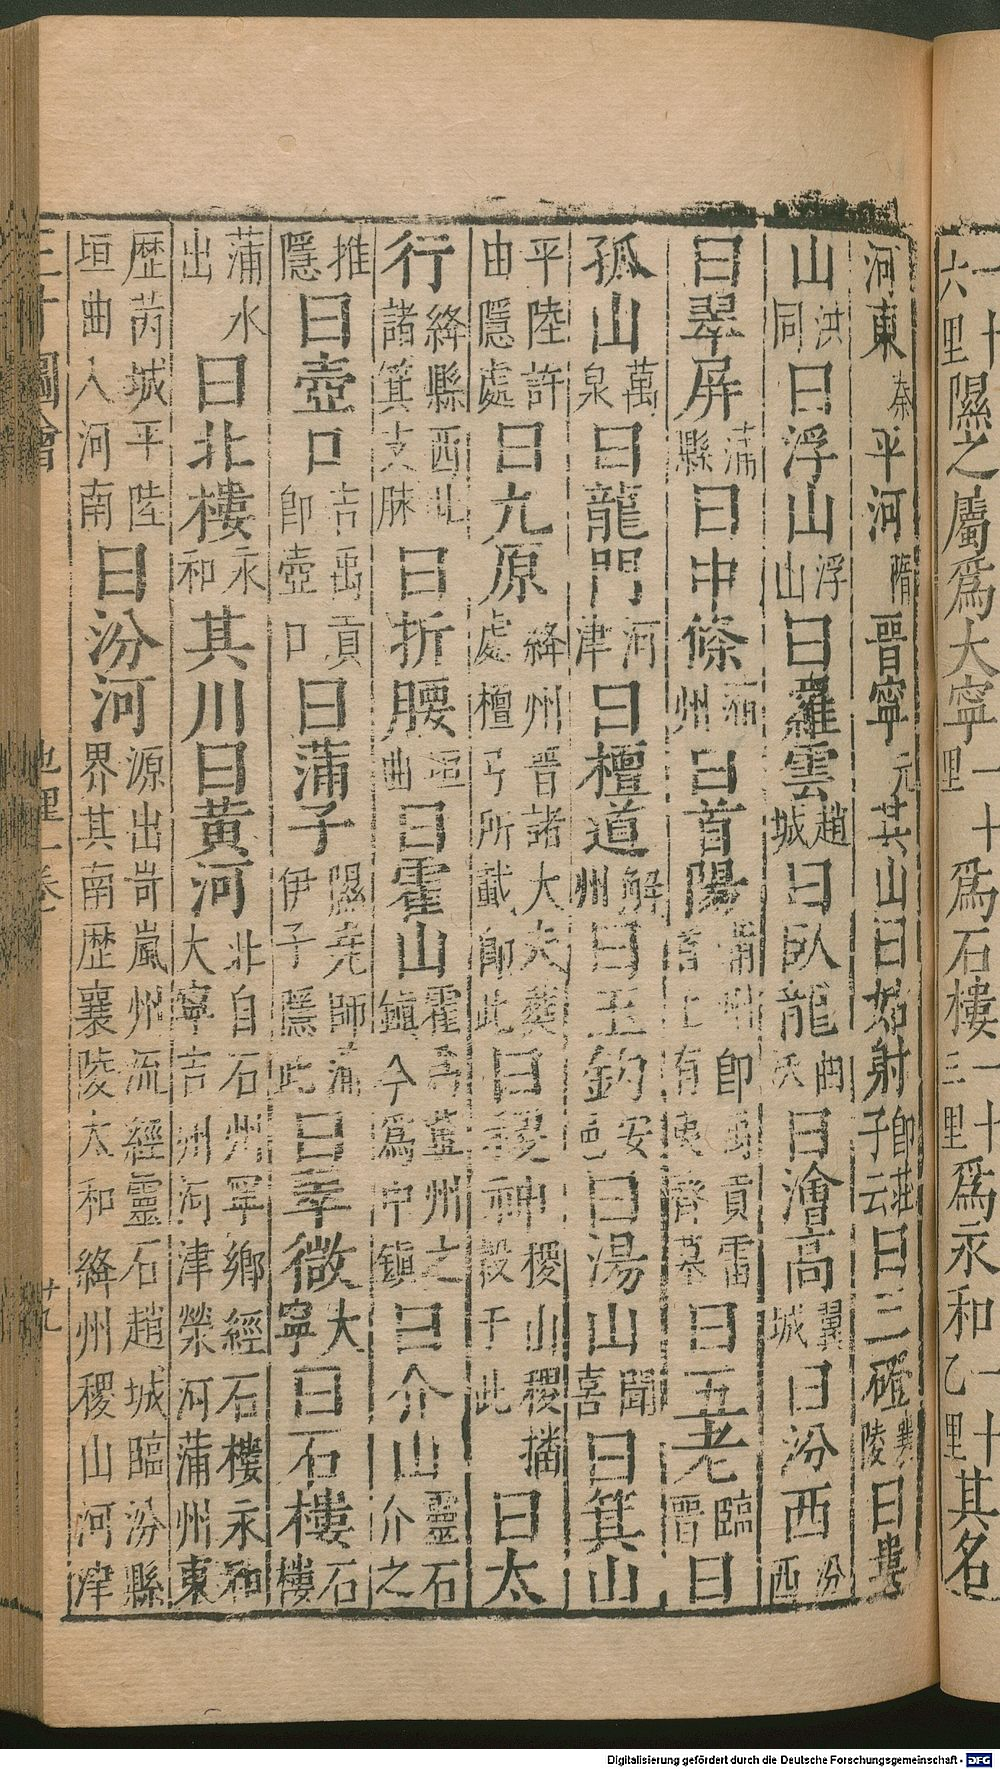 六里隰之屬爲大寧里一十爲石樓一十三里爲永和一十乙里其名
河東秦平河隋晉寧元其山曰姑射即莊子云曰三磴襄陵曰婁
山洪同曰浮山浮山曰羅雲趙城曰臥龍曲沃曰澮高翼城曰汾西汾西
曰翠屏蒲縣曰中條蒲州曰首陽蒲州即禹貢雷首上有夷齊墓曰五老臨晉曰
孤山萬泉曰龍門河津曰檀道解州曰玉鈎安邑曰湯山聞喜曰箕山
平陸許由隱處曰九原絳州晉諸大夫葬處檀弓所載即此曰稷神山稷山稷播穀于此曰太
行絳縣西北諸箕支脉曰折腰垣曲曰霍山霍州之鎮今爲中鎮曰介山靈石介之
推隱曰壺口吉禹貢即壺口曰蒲子隰堯師蒲伊子隱此曰翠微大寧曰石樓石樓
蒲水出曰北樓永和其川曰黃河北自石州寧鄉經石樓永和大寧吉州河津榮河蒲州東
歷芮城平陸垣曲入河南曰汾河源出岢嵐州流經靈石趙城臨汾縣界其南歷襄陵太和絳州稷山河津
三才圖會
地理一卷
廿九
Digitalisierung gefördert durch die Deutsche Forschungsgemeinschaft - DFG